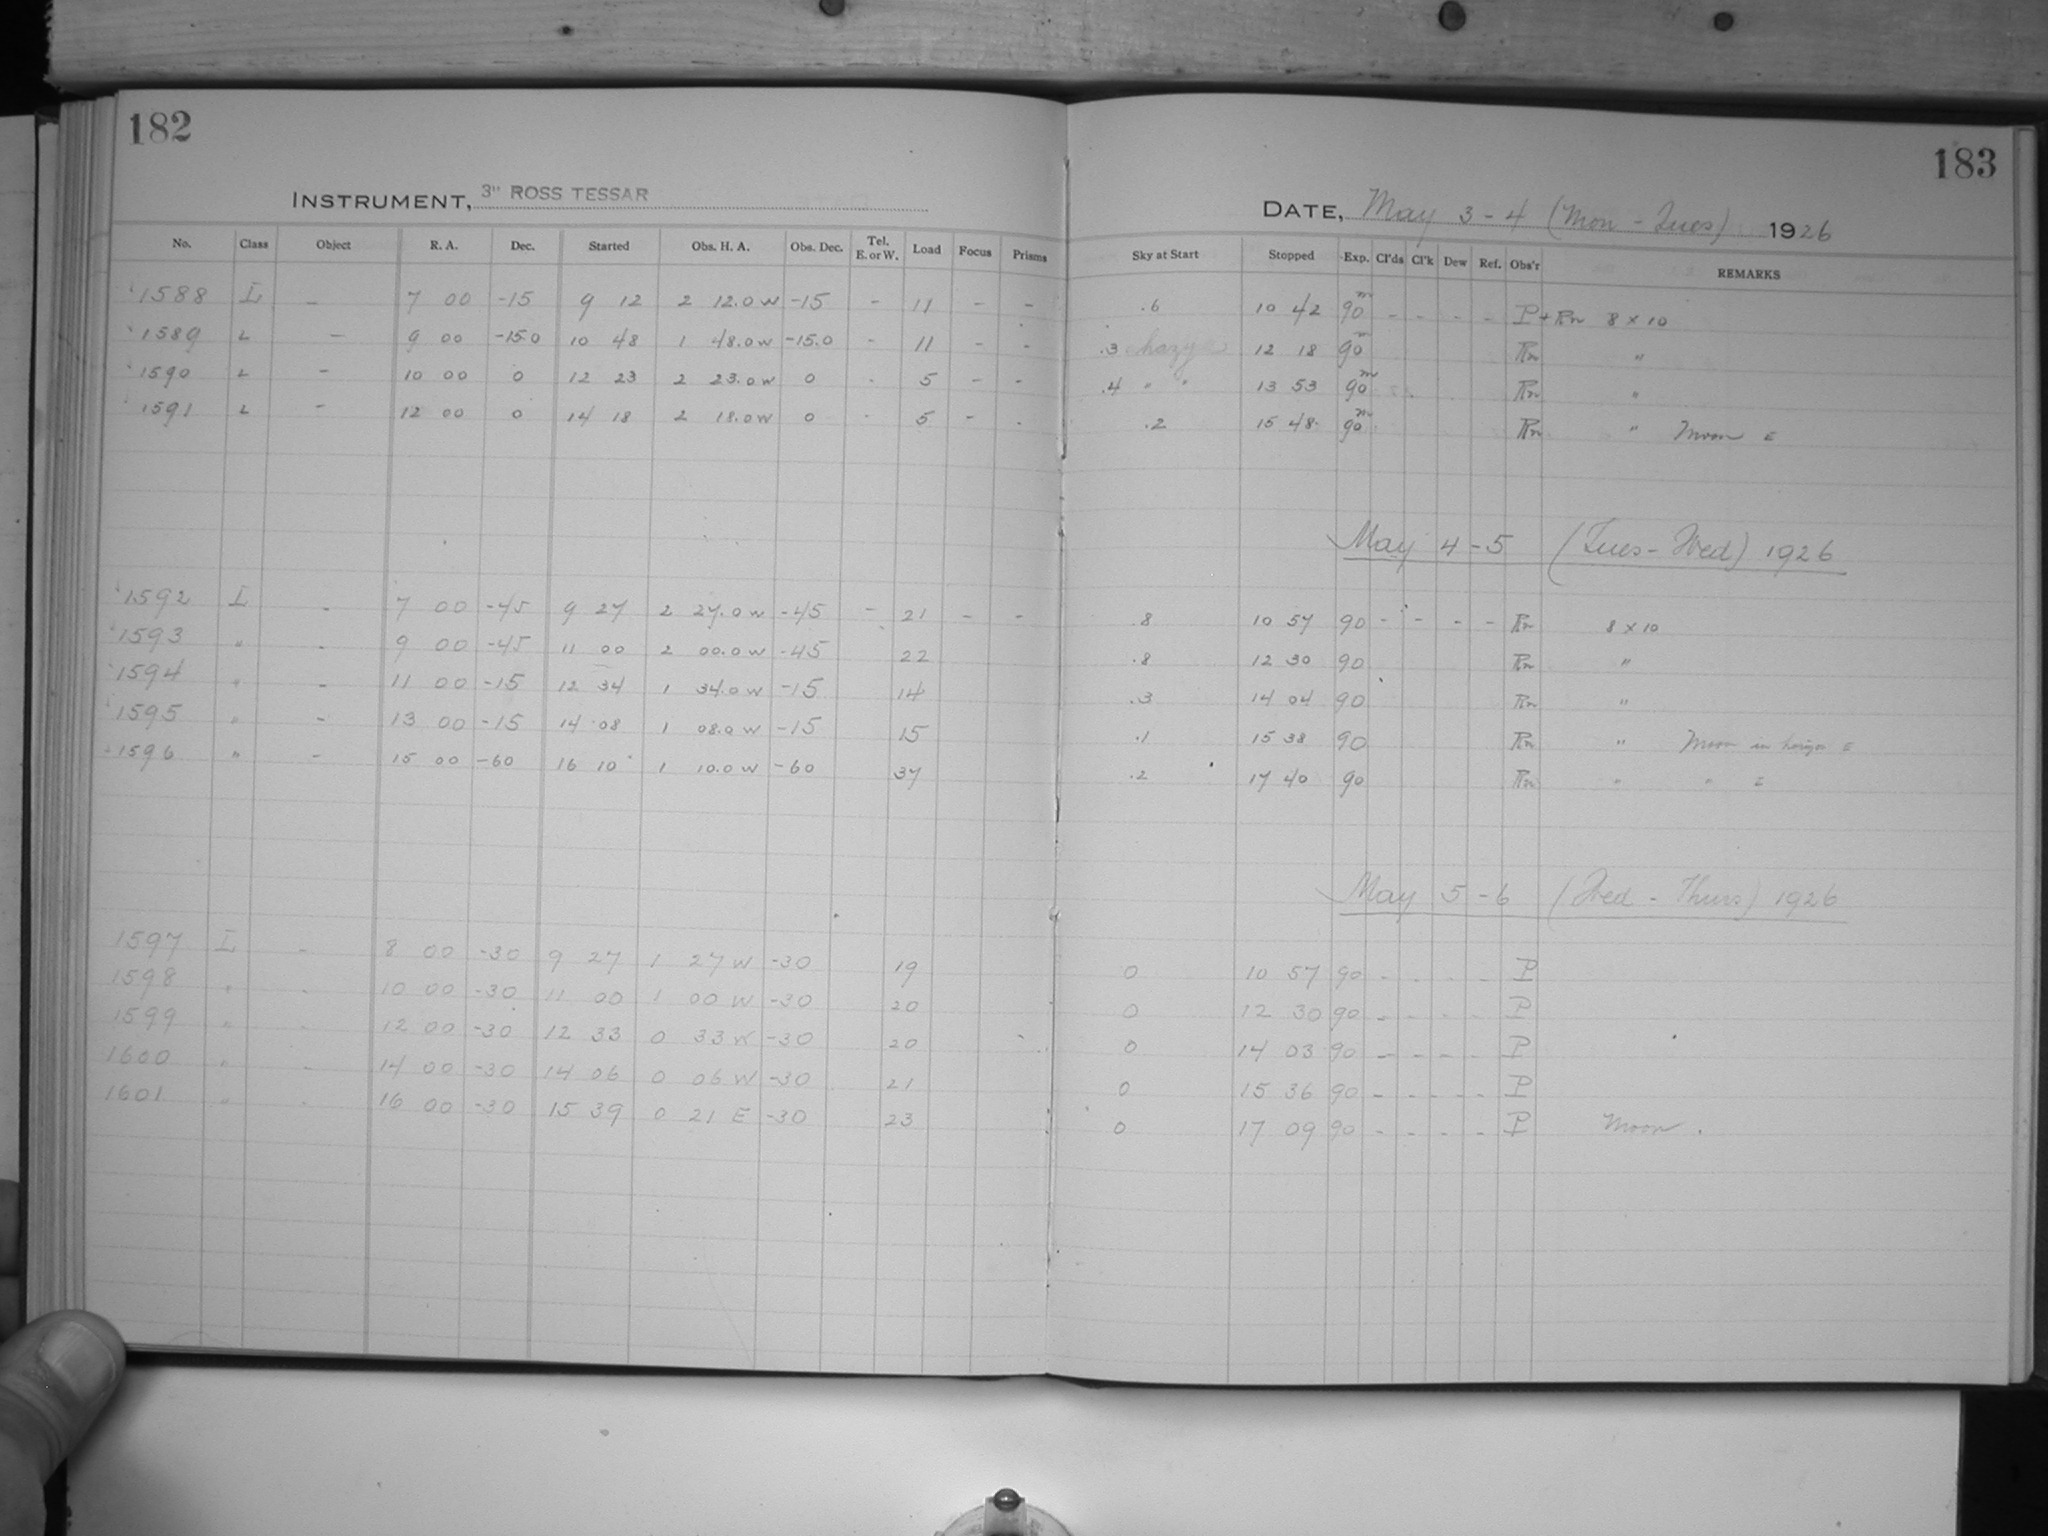 182
INSTRUMENT, 3" ROSS TESSAR
No. Class Object R. A. Dec. Started Obs. H. A. Obs. Dec. Tel. E. or W. Load Focus Prisms
1588 L - 7 00 -15 9 12 2 12.0 W -15 - 11 - -
1589 L - 9 00 -15.0 10 48 1 48.0 W -15.0 - 11 - -
1590 L - 10 00 0 12 23 2 23.0 W 0 - 5 - -
1591 L - 12 00 0 14 18 2 18.0 W 0 - 5 - -
1592 L - 7 00 -45 9 27 2 27.0 W -45 - 21 - -
1593 " - 9 00 -45 11 00 2 00.0 W -45 22
1594 " - 11 00 -15 12 34 1 34.0 W -15 14
1595 " - 13 00 -15 14 08 1 08.0 W -15 15
1596 " - 15 00 -60 16 10 1 10.0 W -60 37
1597 L - 8 00 -30 9 27 1 27 W -30 19
1598 " - 10 00 -30 11 00 1 00 W -30 20
1599 " - 12 00 -30 12 33 0 33 W -30 20
1600 " - 14 00 -30 14 06 0 06 W -30 21
1601 " - 16 00 -30 15 39 0 21 E -30 23
183
DATE, May 3-4 (Mon - Tues) 1926
Sky at Start Stopped Exp. Cl'ds Cl'k Dew Ref. Obs'r REMARKS
.6 10 42 90m - - - - P + Rn 8 x 10
.3 hazy 12 18 90m Rn "
.4 " " 13 53 90m Rn "
.2 15 48 90m Rn " Moon E
May 4-5 (Tues - Wed) 1926
.8 10 57 90 - - - - Rn 8 x 10
.8 12 30 90 Rn "
.3 14 04 90 Rn "
.1 15 38 90 Rn " Moon in E
.2 17 40 90 Rn " " E
May 5-6 (Wed - Thurs) 1926
0 10 57 90 - - - - P
0 12 30 90 - - - - P
0 14 03 90 - - - - P
0 15 36 90 - - - - P
0 17 09 90 - - - - P Moon.